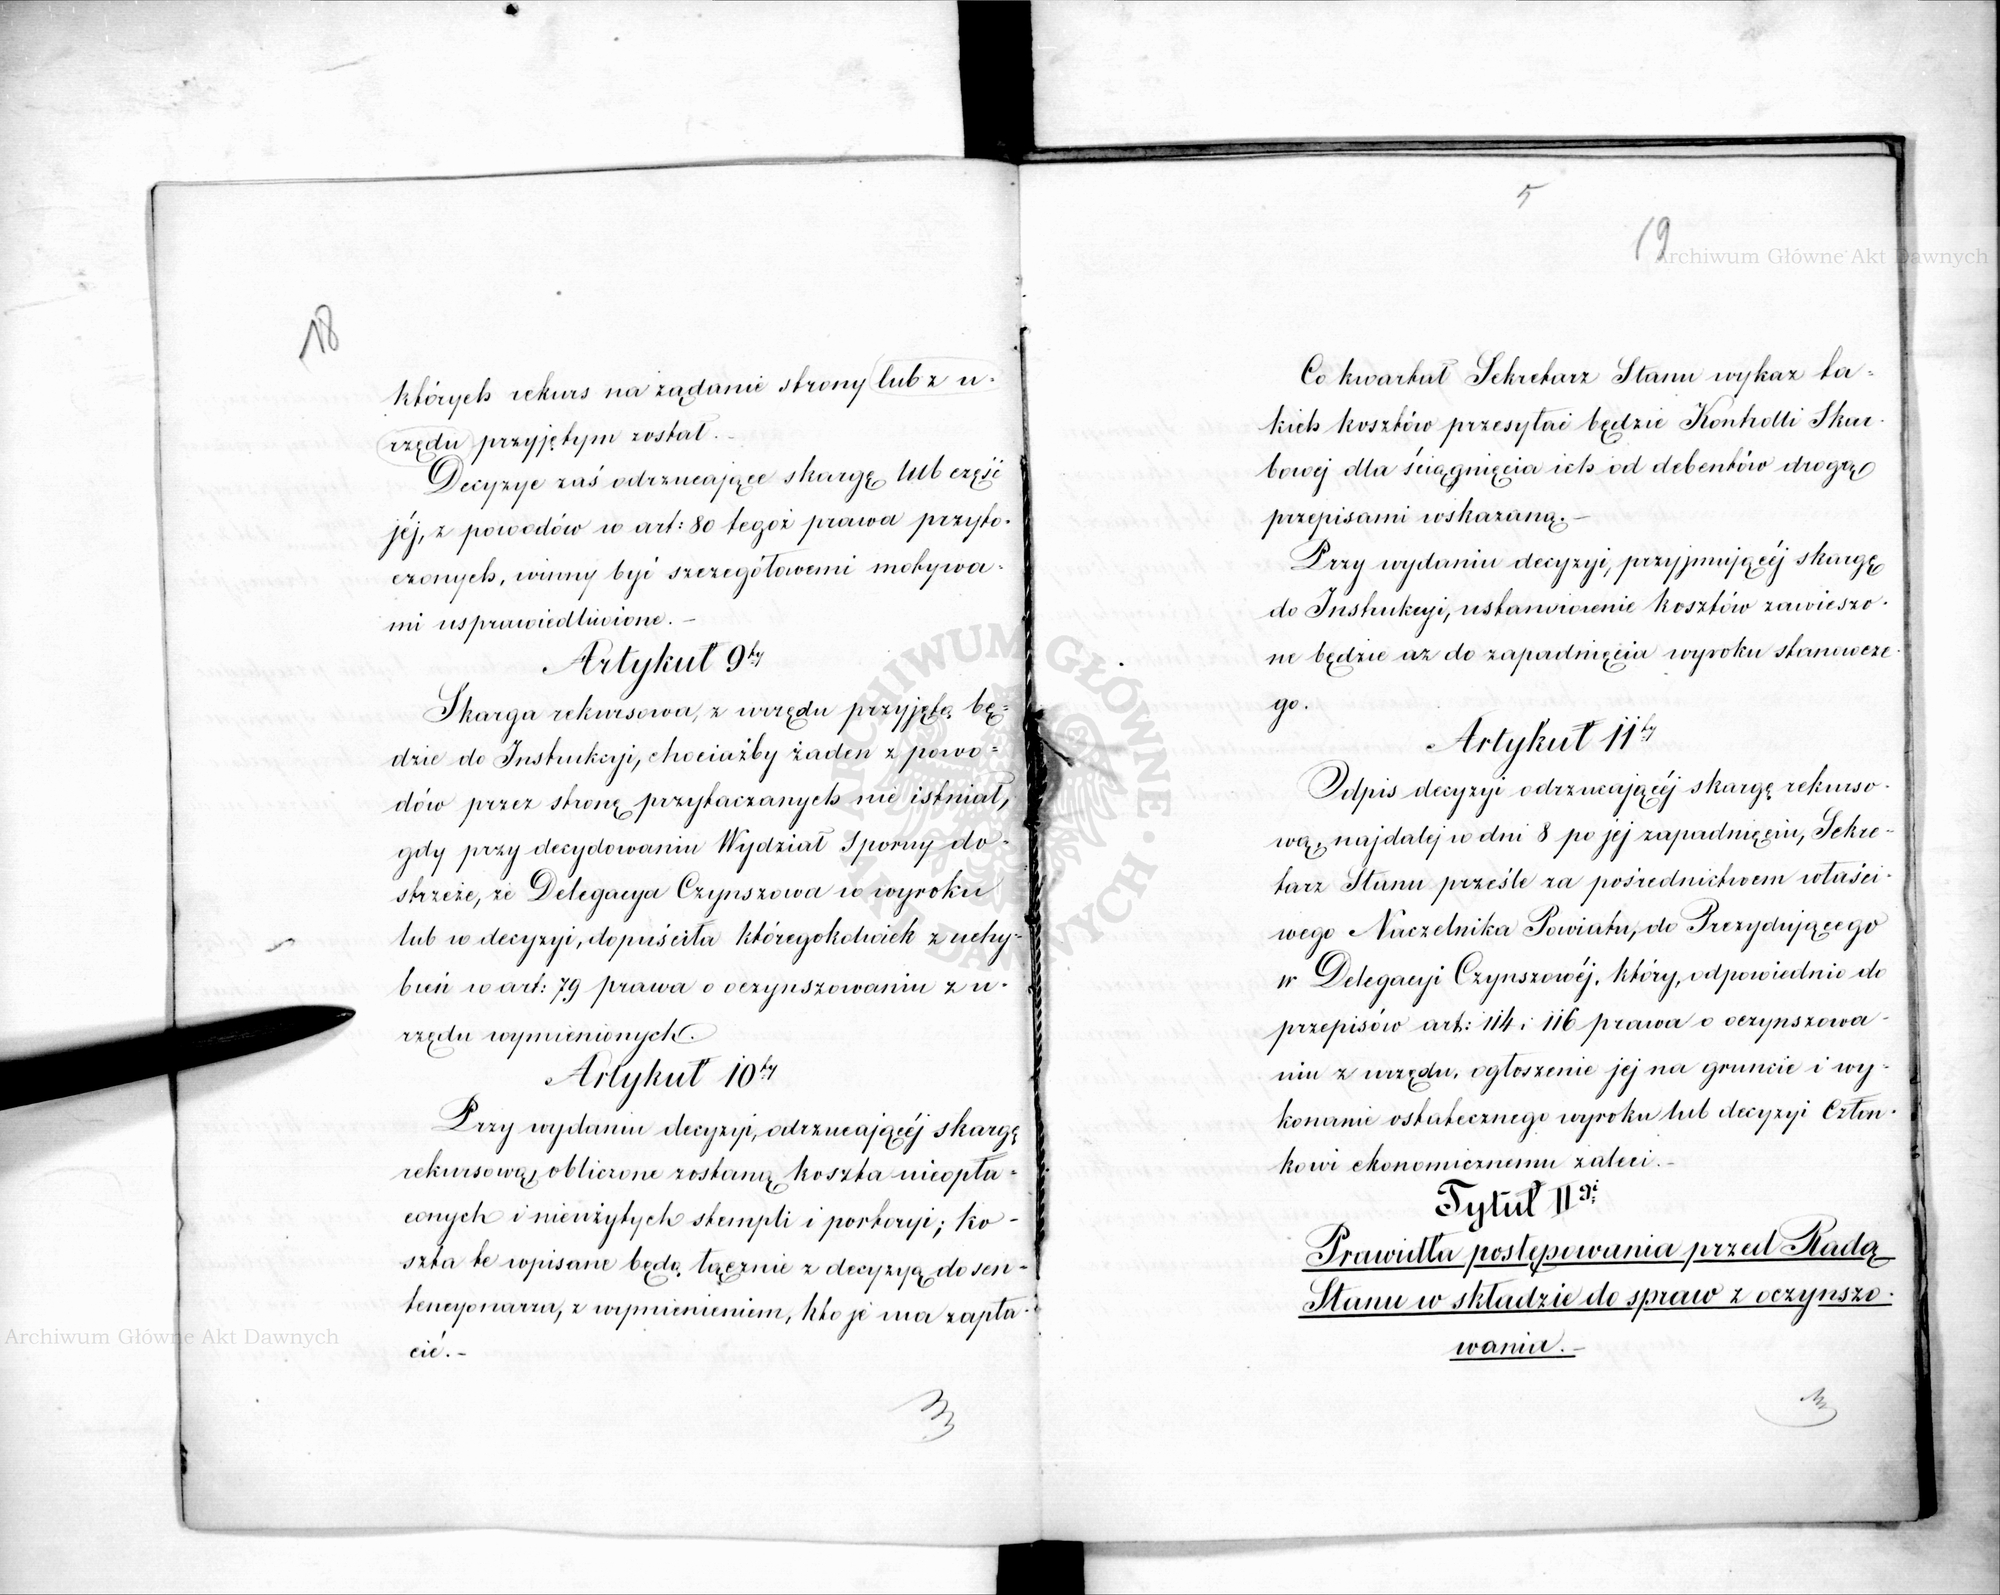 18
których rekurs na żądanie strony lub z u-
rzędu przyjętym został.-
Decyzye zaś odrzucające skargę lub część
jéj, z powodów w art: 80 tegoż prawa przyto-
czonych, winny być szczegółowemi motywa-
mi usprawiedliwione.-
Artykuł 9ty
Skarga rekursowa, z urzędu przyjętą bę-
dzie do Instrukcyi, chociażby żaden z powo-
dów przez stronę przytaczanych nie istniał,
gdy przy decydowaniu Wydział Sporny do-
strzeże, że Delegacya Czynszowa w wyroku
lub w decyzyi, dopuściła któregokolwiek z uchy-
bień w art: 79 prawa o oczynszowaniu z u-
rzędu wymienionych.
Artykuł 10ty
Przy wydaniu decyzyi, odrzucającéj skargę
rekursową, obliczone zostaną koszta nieopła-
conych i nieużytych stempli i portoryi; ko-
szta te wpisane będą łącznie z decyzyą do sen-
tencyonarza, z wymienieniem, kto je ma zapła-
cić.-
5
19
Co kwartał Sekretarz Stanu wykaz ta-
kich kosztów przesyłać będzie Kontrolli Skar-
bowej dla ściągnięcia ich od debentów drogą
przepisami wskazaną.-
Przy wydaniu decyzyi, przyjmującéj skargę
do Instrukcyi, ustanowienie kosztów zawieszo-
ne będzie aż do zapadnięcia wyroku stanowcze-
go.
Artykuł 11ty
Odpis decyzyi odrzucającéj skargę rekurso-
wą, najdalej w dni 8 po jej zapadnięciu, Sekre-
tarz Stanu prześle za pośrednictwem właści-
wego Naczelnika Powiatu, do Prezydującego
w Delegacyi Czynszowéj, który, odpowiednio do
przepisów art: 114 i 116 prawa o oczynszowa-
niu z urzędu, ogłoszenie jej na gruncie i wy-
konanie ostatecznego wyroku lub decyzyi Człon-
kowi ekonomicznemu zaleci.-
Tytuł II gi
Prawidła postępowania przed Radą
Stanu w składzie do spraw z oczynszo-
wania.-
Archiwum Główne Akt Dawnych
Archiwum Główne Akt Dawnych
ARCHIWUM GŁÓWNE AKT DAWNYCH